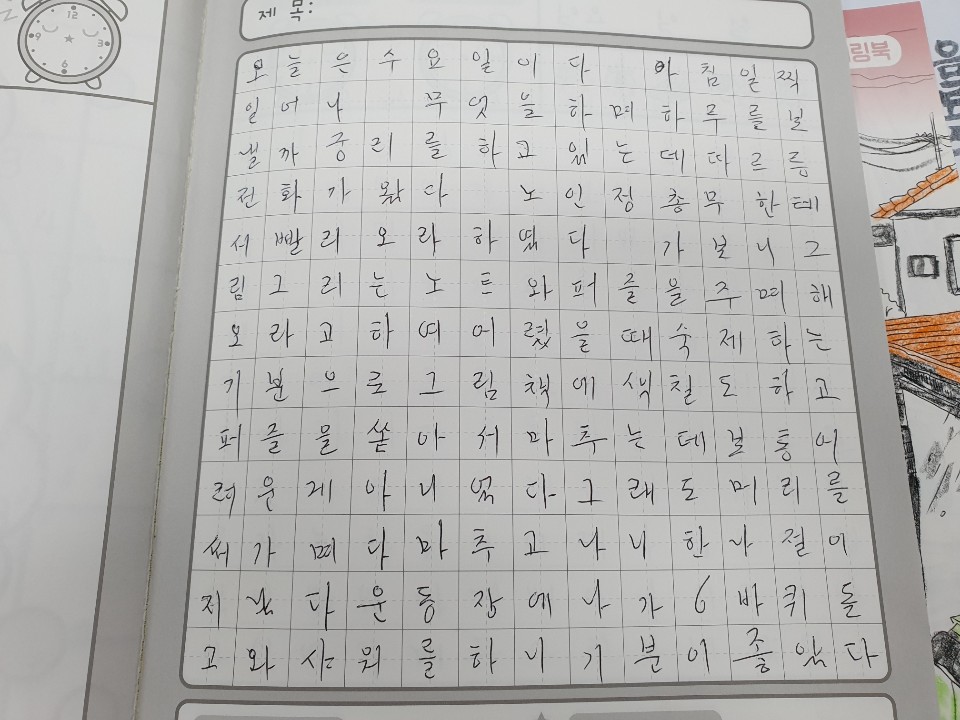 제 목:
12
9
3
6
오늘은수요일이다 아침일찍
일어나 무엇을하며하루를보
낼까궁리를하고있는데따르릉
전화가왔다 노인정총무한테
서빨리오라하였다 가보니그
림그리는노트와퍼즐을주며해
오라고하여어렸을때숙제하는
기분으로그림책에색칠도하고
퍼즐을쏟아서마추는데보통어
려운게아니였다그래도머리를
써가며다마추고나니한나절이
지났다운동장에나가6바퀴돌
고와샤워를하니기분이좋았다
링북